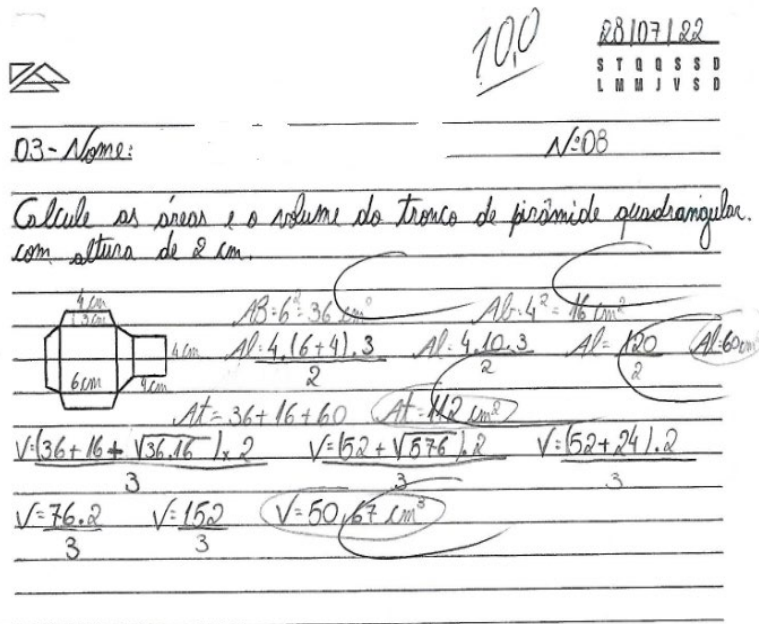 10,0
28/07/22
S T Q Q S S D
L M M J V S D
03- Nome:
Nº08
Calcule as áreas e o volume do tronco de pirâmide quadrangular.
com altura de 2 cm.
4cm
3cm
4cm
6cm
4cm
AB=6²=36 cm²
Ab=4²=16 cm²
Al=4.(6+4).3/2
Al=4.10.3/2
Al=120/2
Al=60cm²
At=36+16+60
At=112 cm²
V=(36+16+√36.16)x2/3
V=(52+√576).2/3
V=(52+24).2/3
V=76.2/3
V=152/3
V=50,67 cm³